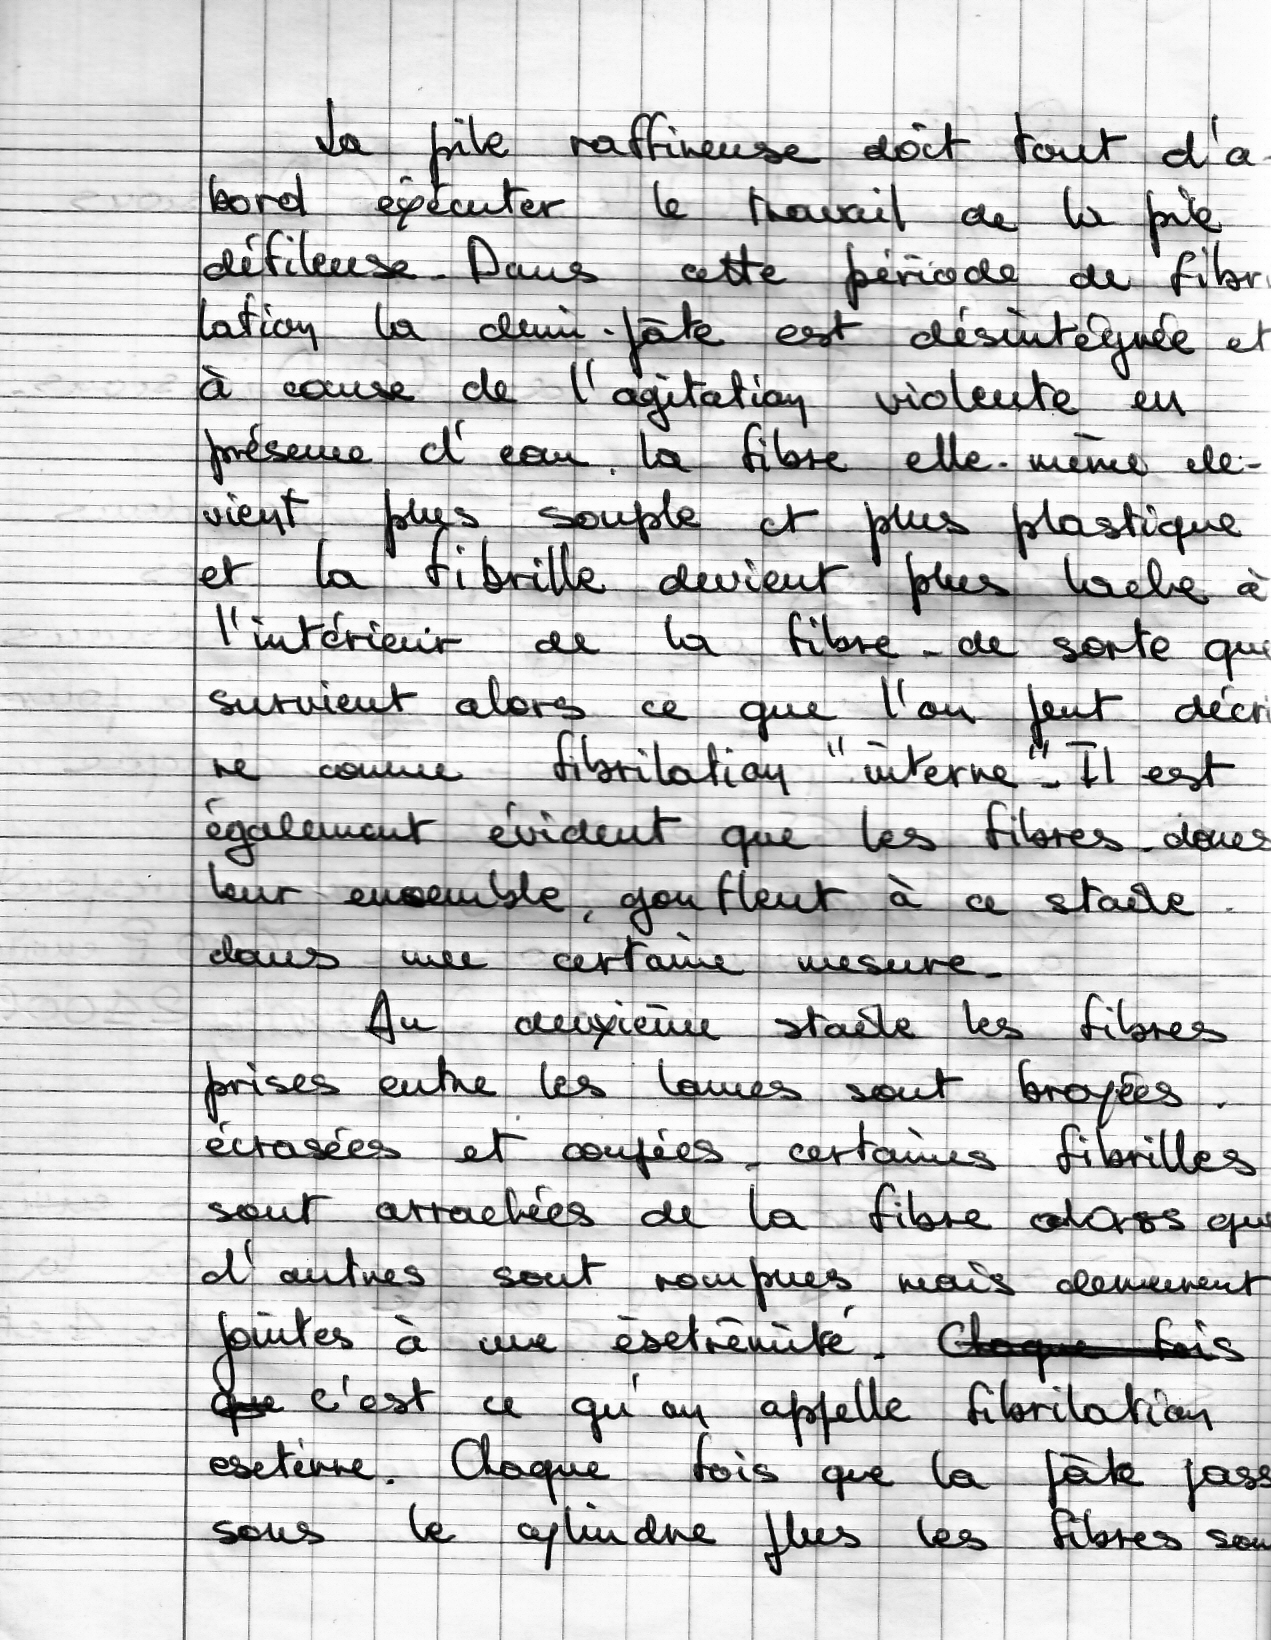 La pile raffineuse doit tout d'a-
bord exécuter le travail de la pile
défileuse. Dans cette période de fibri
lation la demi-pâte est désintégrée et
à cause de l'agitation violente en
présence d'eau, la fibre elle-même de-
vient plus souple et plus plastique
et la fibrille devient plus lache à
l'intérieur de la fibre - de sorte que
survient alors ce que l'on peut décri
re comme fibrilation "interne". Il est
également évident que les fibres, dans
leur ensemble, gonflent à ce stade
dans une certaine mesure.
Au deuxième stade les fibres
prises entre les lames sont broyées,
écrasées et coupées, certaines fibrilles
sont arrachées de la fibre alors que
d'autres sont rompues mais demeurent
jointes à une extrémité. Chaque fois
que c'est ce qu'on appelle fibrilation
externe. Chaque fois que la pâte pass
sous le cylindre plus les fibres son